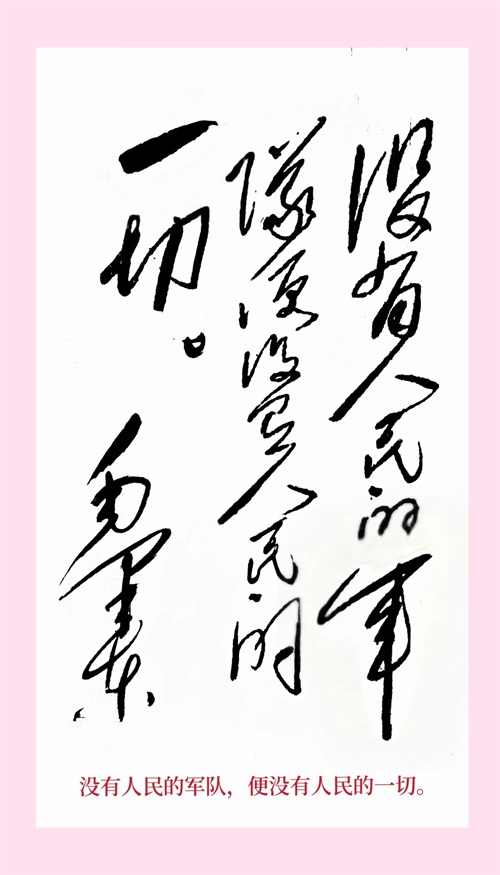 没有人民的軍
隊便没有人民的
一切。
毛泽东
没有人民的军队，便没有人民的一切。